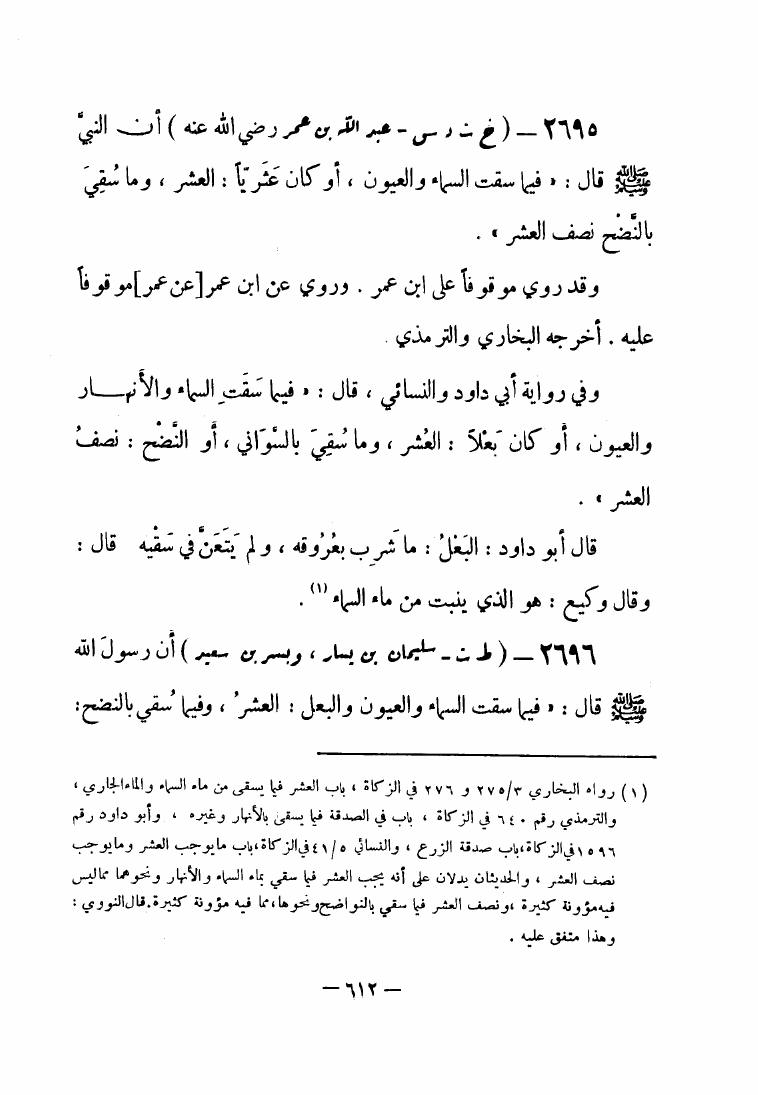 ٢٦٩٥ — ( خ ت د س - عبد الله بن عمر رضي الله عنه ) أن النبيَّ
ﷺ قال : « فيما سقت السماء والعيون ، أو كان عَثَرِيّاً : العشر ، وما سُقِيَ
بالنَّضْح نصف العشر » .
وقد روي موقوفاً على ابن عمر . وروي عن ابن عمر [عن عمر] موقوفاً
عليه . أخرجه البخاري والترمذي .
وفي رواية أبي داود والنسائي ، قال : « فيما سَقَتِ السماء والأنهار
والعيون ، أو كان بَعْلاً : العُشر ، وما سُقِيَ بالسَّوَاني ، أو النَّضْح : نصفُ
العشر » .
قال أبو داود : البَعْلُ : ما شَرِب بعُرُوقه ، ولم يَتَعَنَّ في سَقْيه قال :
وقال وكيع : هو الذي ينبت من ماء السماء (١) .
٢٦٩٦ — ( ط ت - سليمان بن يسار ، وبسر بن سعيد ) أن رسولَ الله
ﷺ قال : « فيما سقت السماء والعيون والبعل : العشرُ ، وفيما سُقي بالنضح :
(١) رواه البخاري ٢٧٥/٣ و ٢٧٦ في الزكاة ، باب العشر فيما يسقى من ماء السماء والماء الجاري ،
والترمذي رقم ٦٤٠ في الزكاة ، باب في الصدقة فيما يسقى بالأنهار وغيره ، وأبو داود رقم
١٥٩٦ في الزكاة ، باب صدقة الزرع ، والنسائي ٤١/٥ في الزكاة ، باب ما يوجب العشر وما يوجب
نصف العشر ، والحديثان يدلان على أنه يجب العشر فيما سقي بماء السماء والأنهار ونحوهما مما ليس
فيه مؤونة كثيرة ، ونصف العشر فيما سقي بالنواضح ونحوها ، مما فيه مؤونة كثيرة . قال النووي :
وهذا متفق عليه .
— ٦١٢ —